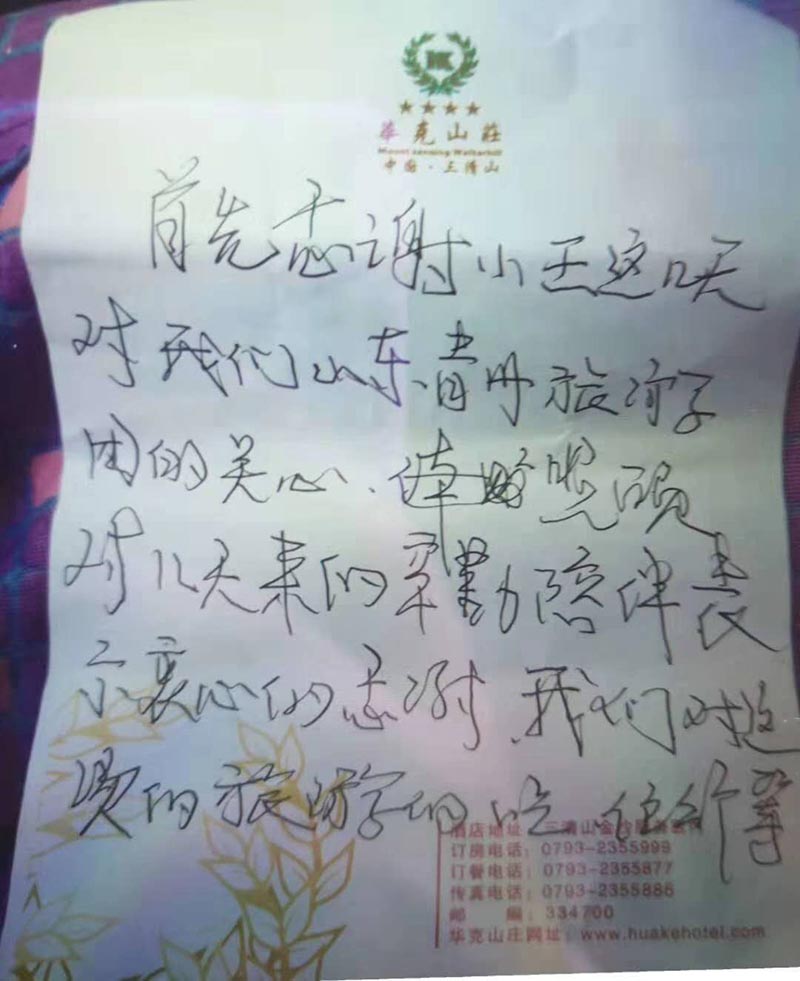 华克山莊
中国·三清山
首先感谢小王这几天
对我们山东青州旅游
团的关心、照顾
对几天来的辛勤陪伴表
示衷心的感谢,我们对这
的旅游 的吃、住、行等
酒店地址:三清山金沙
订房电话:0793-2355999
订餐电话:0793-2355877
传真电话:0793-2355886
邮 编:334700
华克山庄网址:www.huakehotel.com